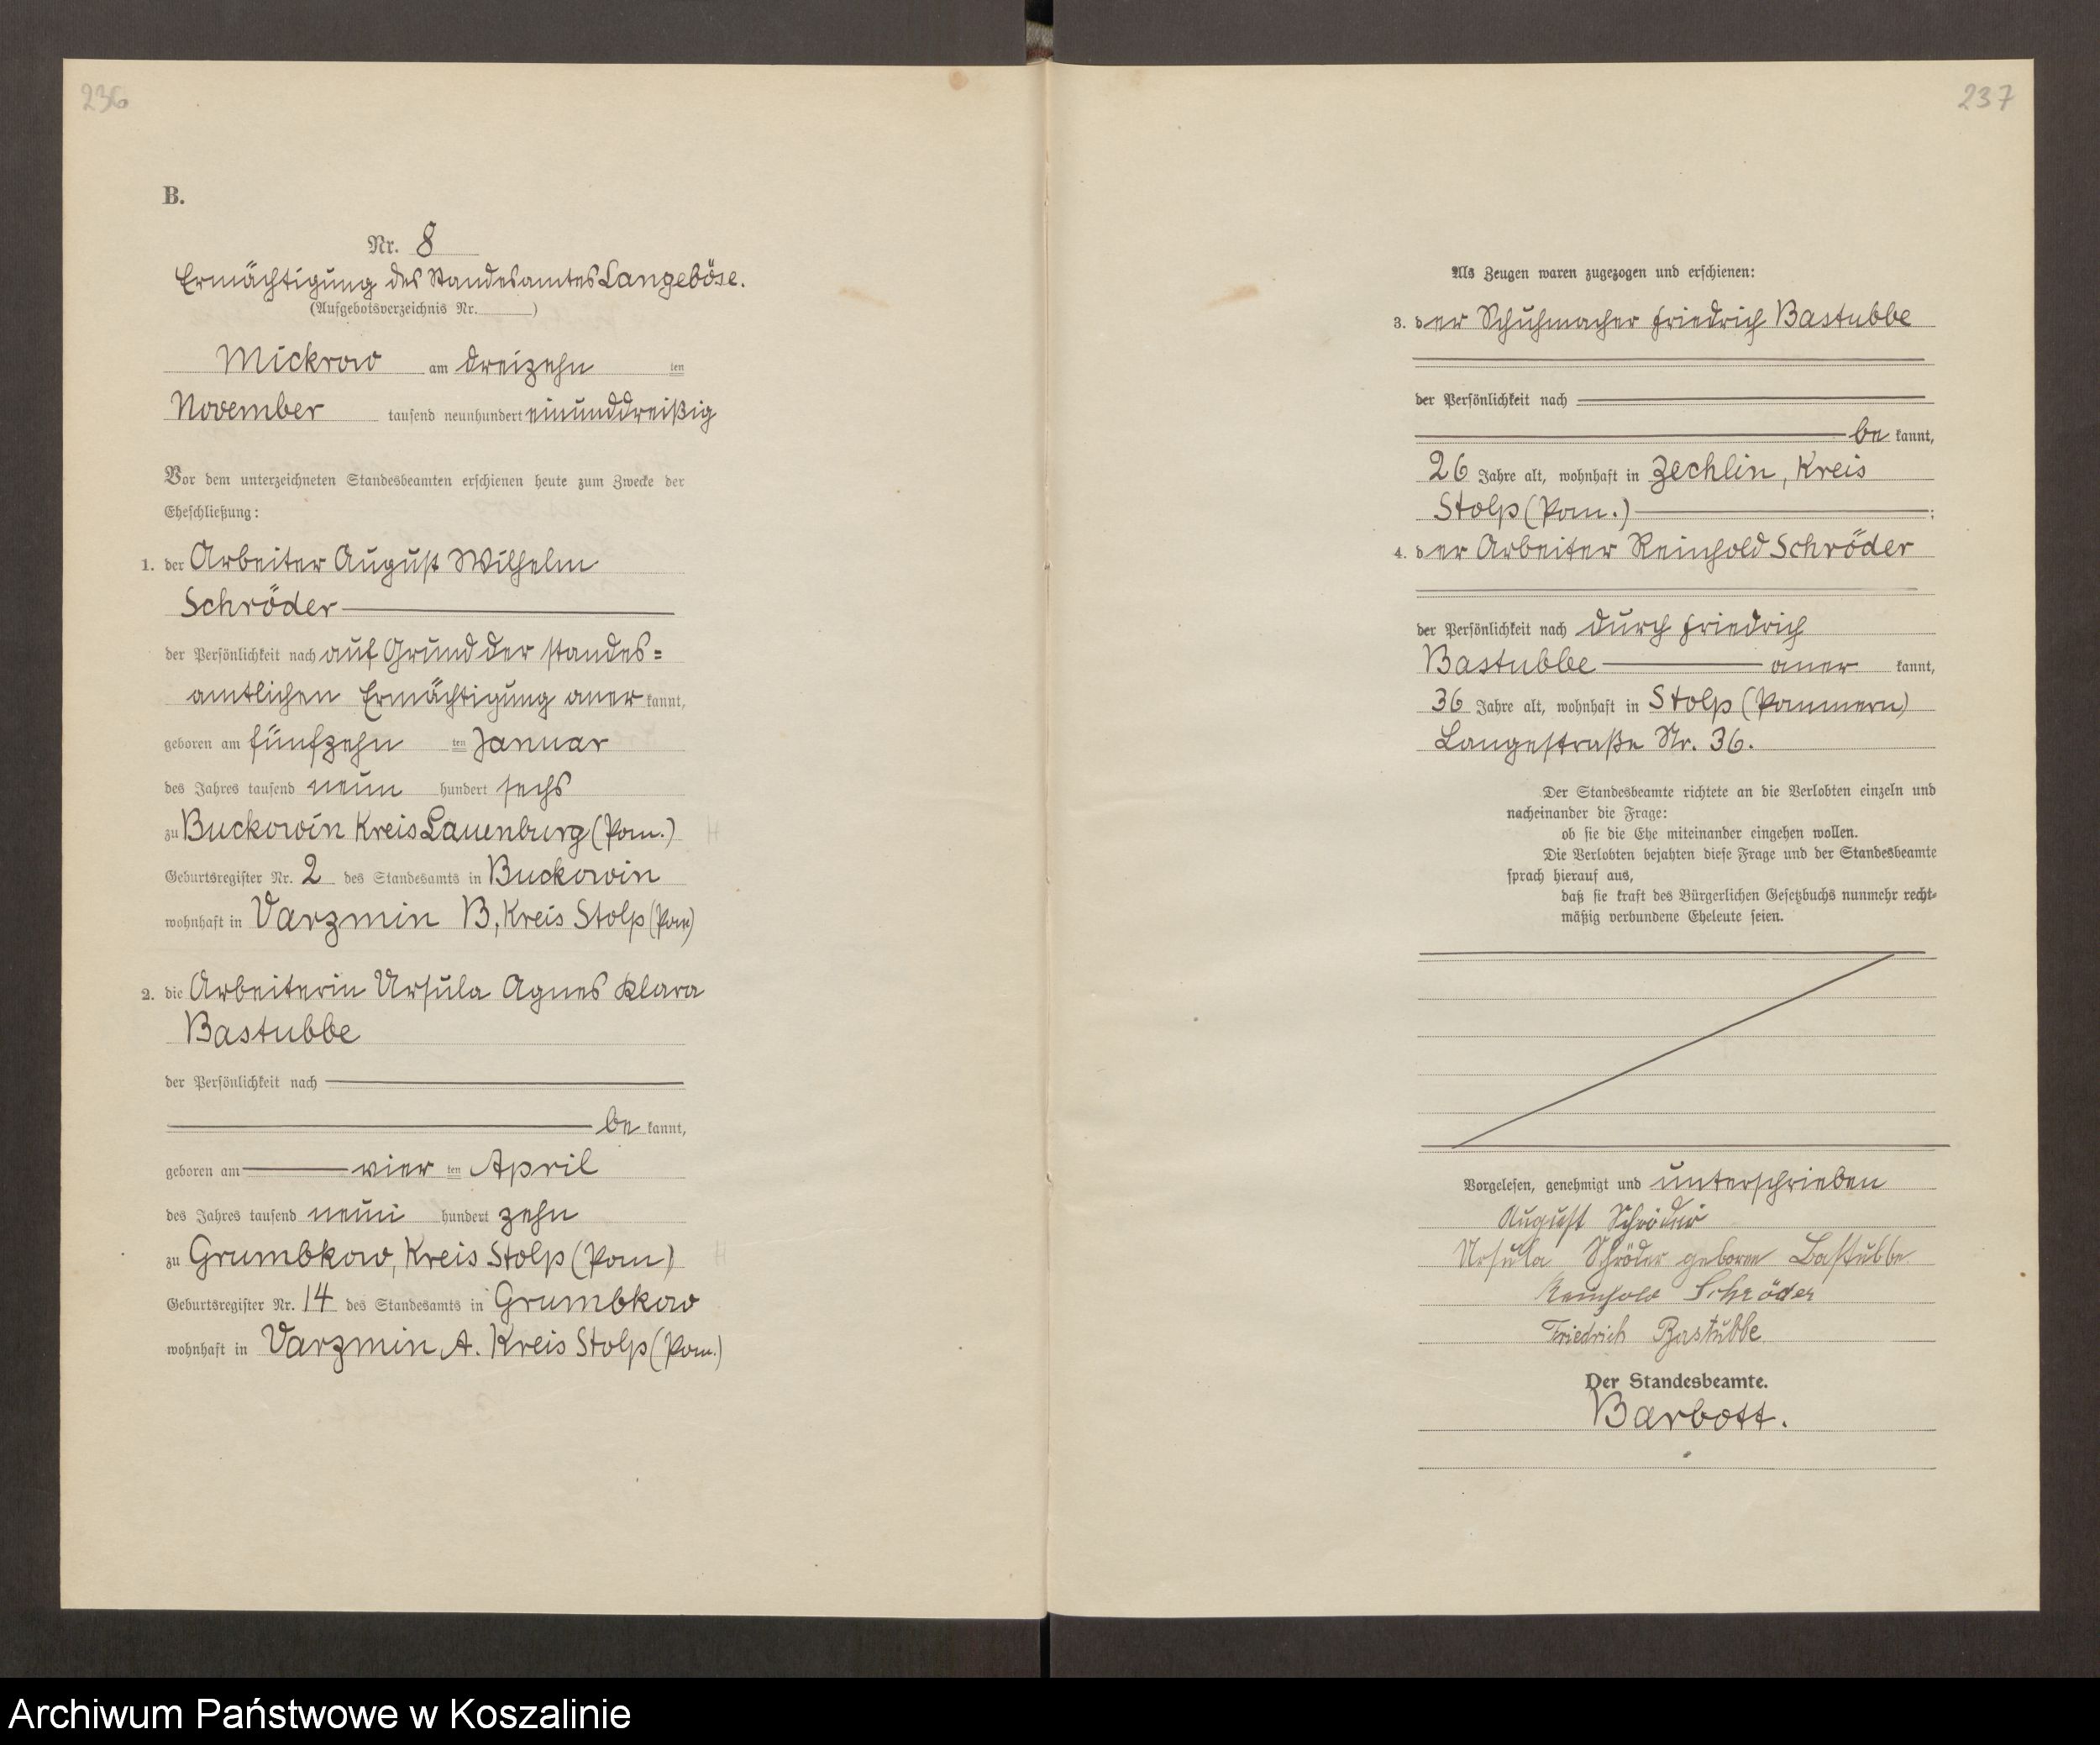 236
B.
Nr. 8
Ermächtigung des Standesamtes Langeböse.
(Aufgebotsverzeichnis Nr. )
Mickrow am dreizehn ten
November tausend neunhundert einunddreißig
Vor dem unterzeichneten Standesbeamten erschienen heute zum Zwecke der
Eheschließung:
1. der Arbeiter August Wilhelm
Schröder
der Persönlichkeit nach auf Grund der standes=
amtlichen Ermächtigung aner kannt,
geboren am fünfzehn ten Januar
des Jahres tausend neun hundert sechs
zu Buckowin Kreis Lauenburg (Pom.)
Geburtsregister Nr. 2 des Standesamts in Buckowin
wohnhaft in Varzmin B, Kreis Stolp (Pom)
2. die Arbeiterin Ursula Agnes Klara
Bastubbe
der Persönlichkeit nach
be kannt,
geboren am vier ten April
des Jahres tausend neun hundert zehn
zu Grumbkow, Kreis Stolp (Pom)
Geburtsregister Nr. 14 des Standesamts in Grumbkow
wohnhaft in Varzmin A. Kreis Stolp (Pom.)
237
Als Zeugen waren zugezogen und erschienen:
3. der Schuhmacher Friedrich Bastubbe
der Persönlichkeit nach
be kannt,
26 Jahre alt, wohnhaft in Zechlin, Kreis
Stolp (Pom.) ;
4. der Arbeiter Reinhold Schröder
der Persönlichkeit nach durch Friedrich
Bastubbe aner kannt,
36 Jahre alt, wohnhaft in Stolp (Pommern)
Langestraße Nr. 36.
Der Standesbeamte richtete an die Verlobten einzeln und
nacheinander die Frage:
ob sie die Ehe miteinander eingehen wollen.
Die Verlobten bejahten diese Frage und der Standesbeamte
sprach hierauf aus,
daß sie kraft des Bürgerlichen Gesetzbuchs nunmehr recht-
mäßig verbundene Eheleute seien.
Vorgelesen, genehmigt und unterschrieben
August Schröder
Ursula Schröder geboren Bastubbe.
Reinhold Schröder
Friedrich Bastubbe
Der Standesbeamte.
Barbott.
Archiwum Państwowe w Koszalinie